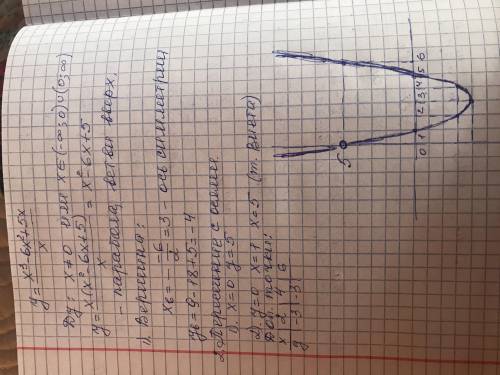 y = x³-6x²+5x / x
Dy: x≠0 или x∈(-∞;0)∪(0;∞)
y = x(x²-6x+5) / x = x²-6x+5
- парабола, ветви вверх.
1) Вершина:
xв = - -6/2 = 3 - ось симметрии
yв = 9-18+5 = -4
2. Пересечение с осями
1). x=0 y=5
2). y=0 x=1 x=5 (т. Виета)
Доп. точки:
x 2 4 6
y -3 -3
5
0 1 2 3 4 5 6